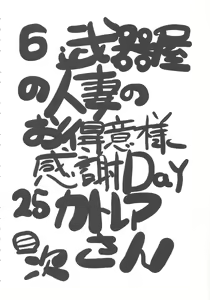 6 武器屋
の人妻の
お得意様
感謝DaY
25 カトレア
さん
目次